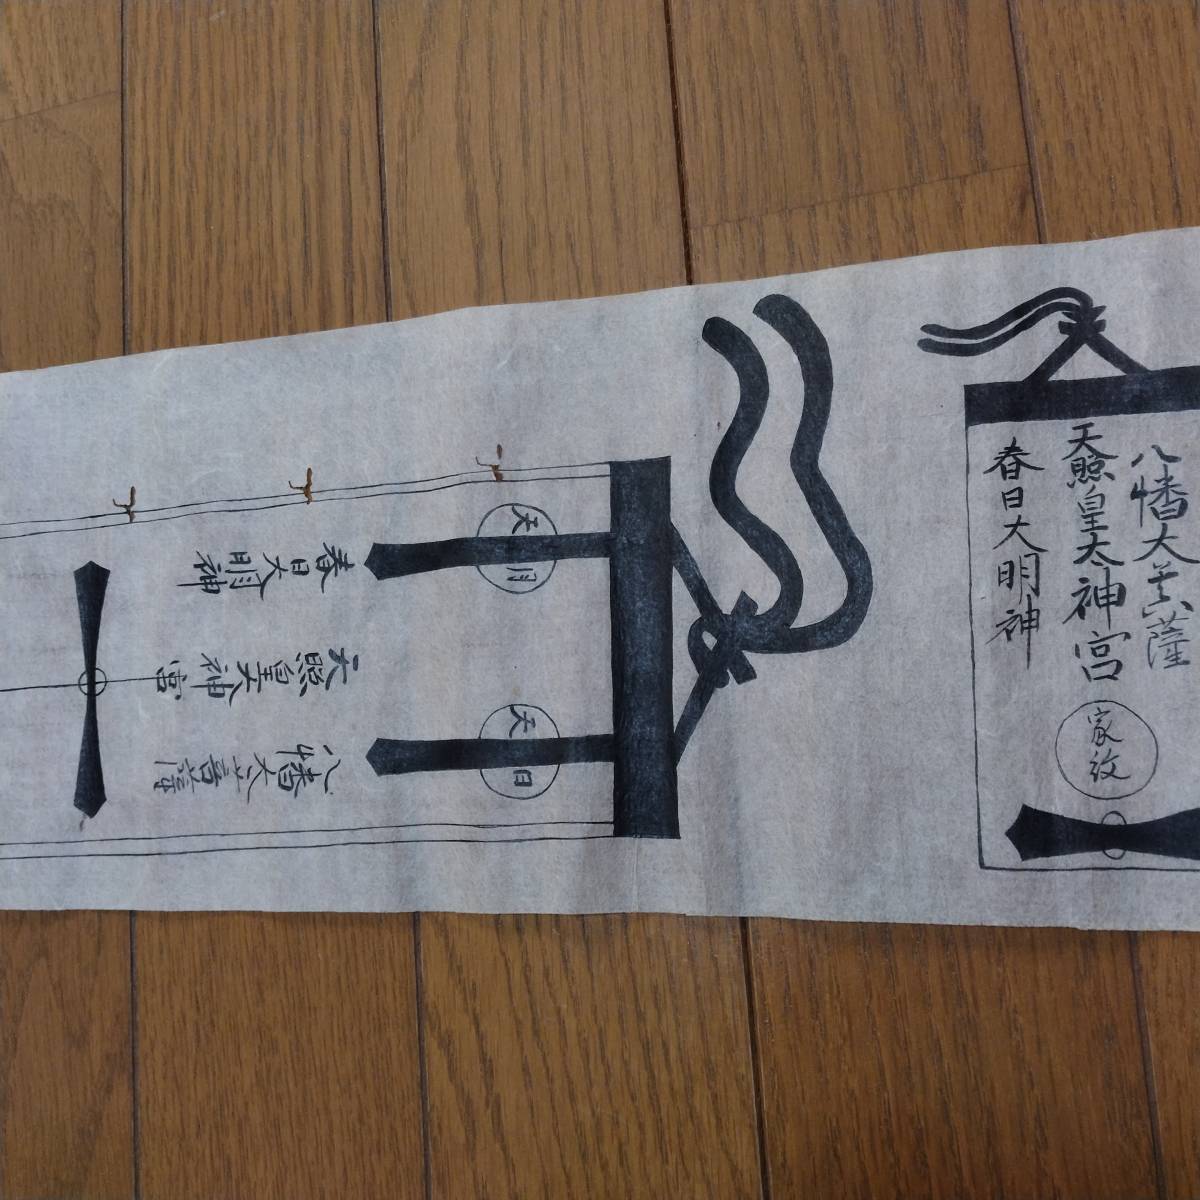 八幡大菩薩
天照皇太神宮
春日大明神
家紋
天日
天月
八幡大菩薩
天照皇大神宮
春日大明神